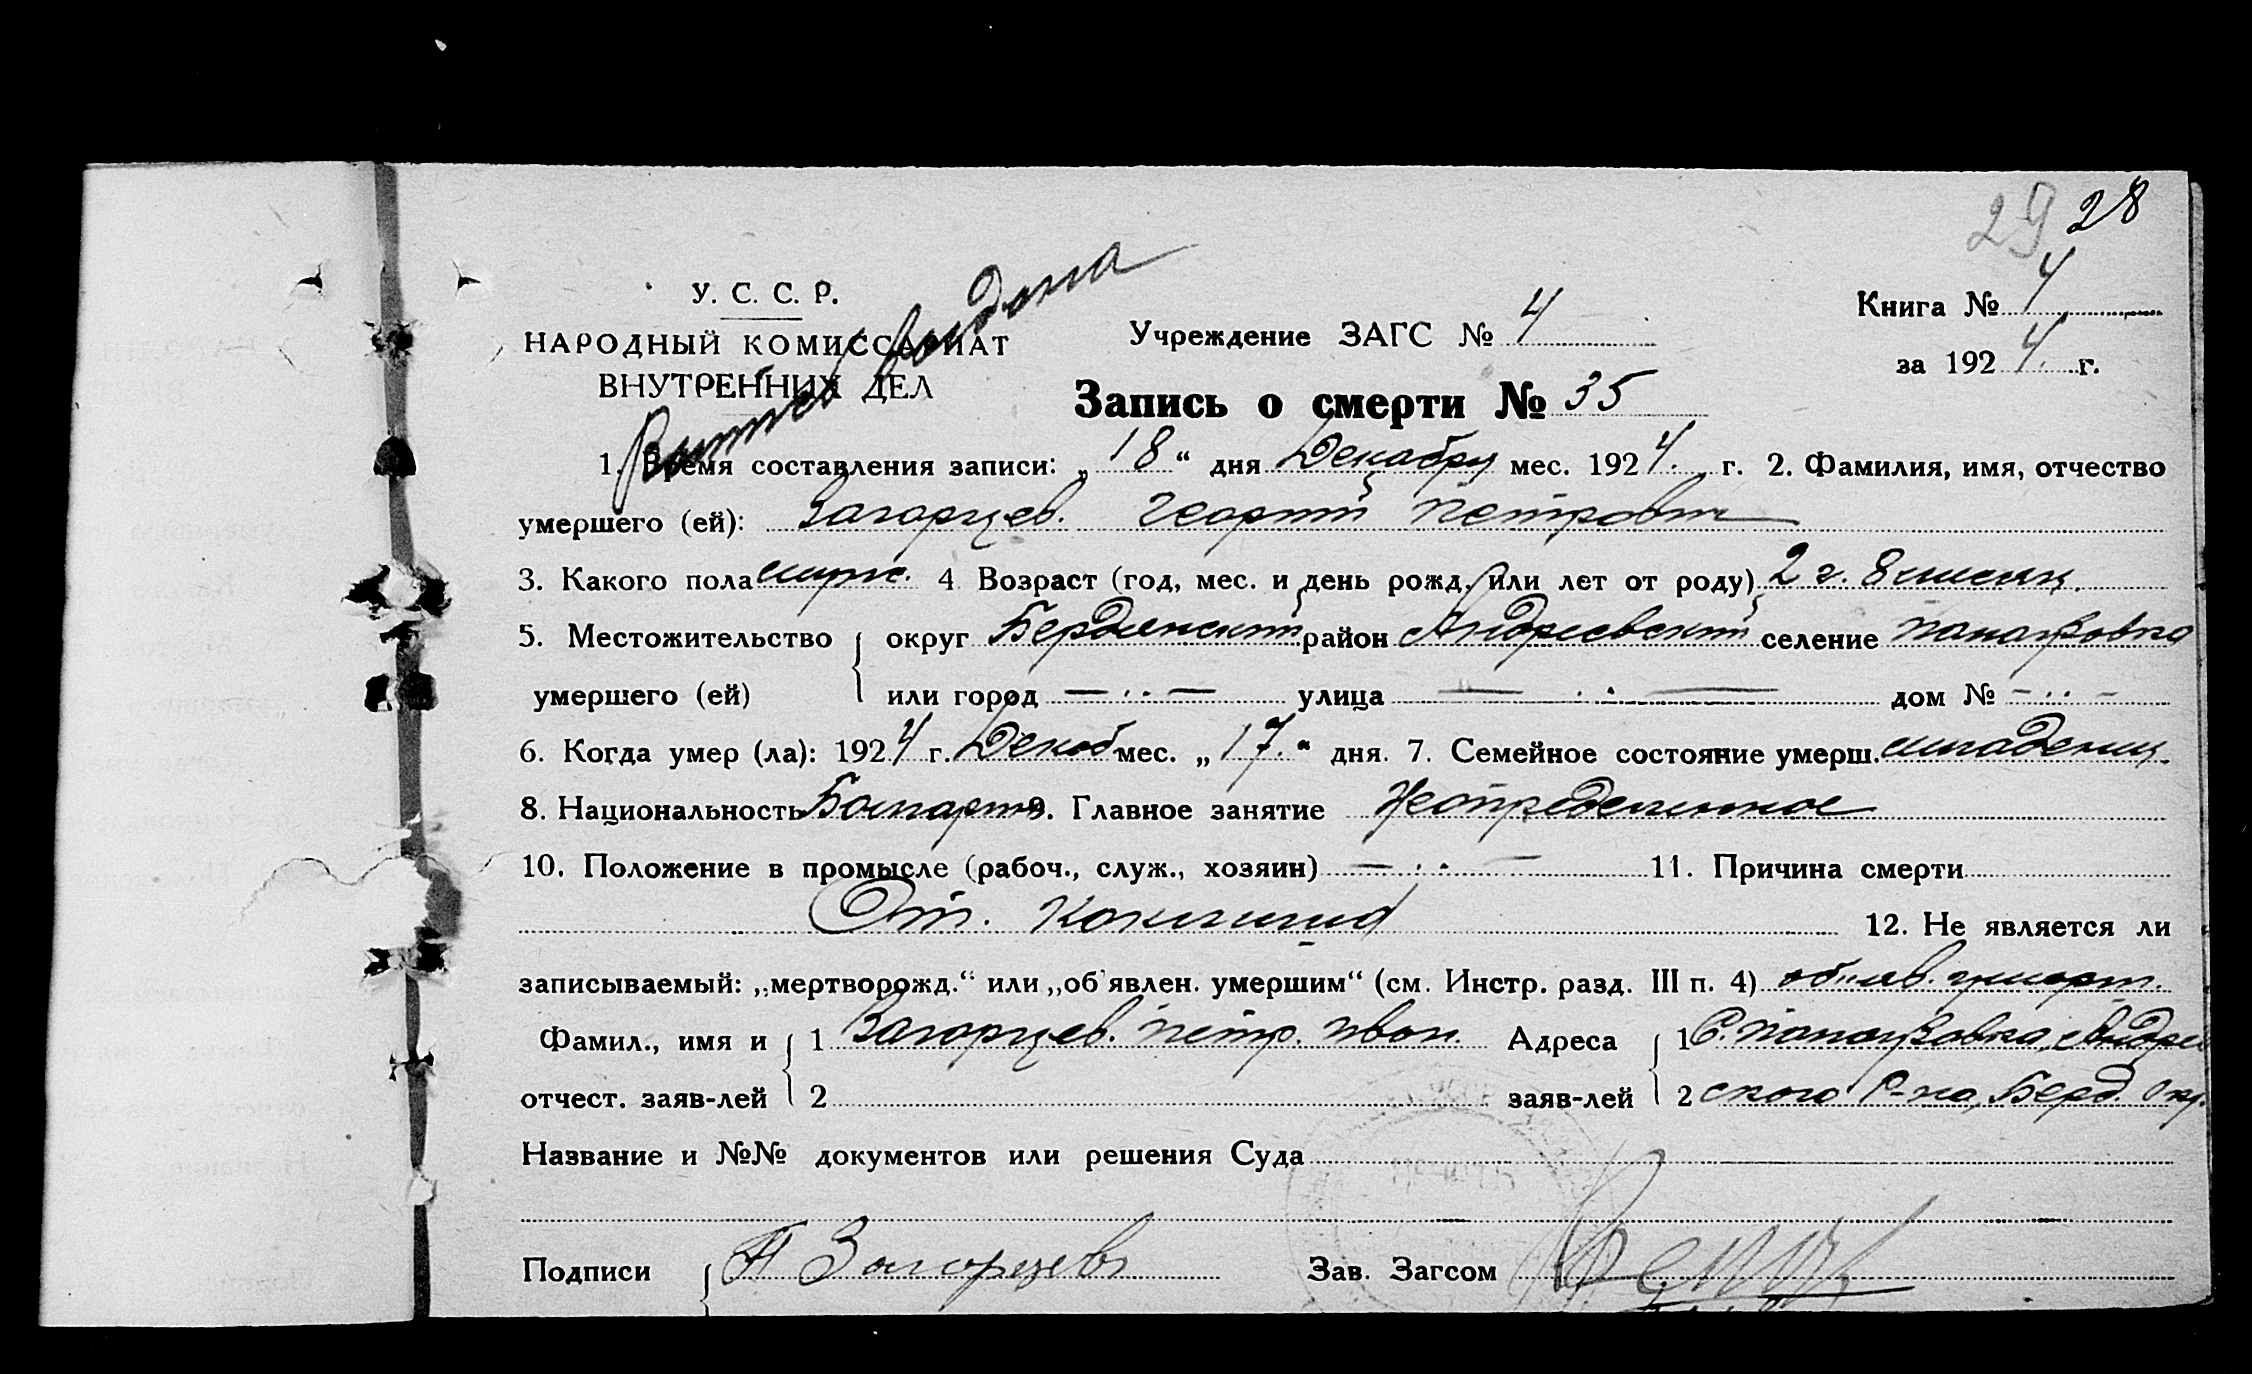 29 28
У. С. С. Р.
НАРОДНЫЙ КОМИССАРИАТ
ВНУТРЕННИХ ДЕЛ
Выпись выдана
Учреждение ЗАГС № 4
Книга № 4
за 1924 г.
Запись о смерти № 35
1. Время составления записи: „18“ дня Декабру мес. 1924. г. 2. Фамилия, имя, отчество
умершего (ей): Загорцев. Георгий Петрович
3. Какого пола муж. 4 Возраст (год, мес. и день рожд. или лет от роду) 2 г. 8 месяц.
5. Местожительство округ Бердянский район Андреевский селение
умершего (ей) или город — . . — улица — . . — дом № — . . —
6. Когда умер (ла): 1924 г. Декаб мес. „17.“ дня. 7. Семейное состояние умерш. младенец
8. Национальность Болгарин 9. Главное занятие Неопределенное
10. Положение в промысле (рабоч., служ., хозяин) — . . — 11. Причина смерти
От.
12. Не является ли
записываемый: „мертворожд.“ или „об'явлен. умершим“ (см. Инстр. разд. III п. 4) об'яв. умерш.
Фамил., имя и 1 Загорцев. Петр. Иван. Адреса 1 С. Андреев
отчест. заяв-лей 2 заяв-лей 2 ского Р-на, Берд. Окр.
Название и №№ документов или решения Суда
Подписи П Загорцевъ Зав. Загсом